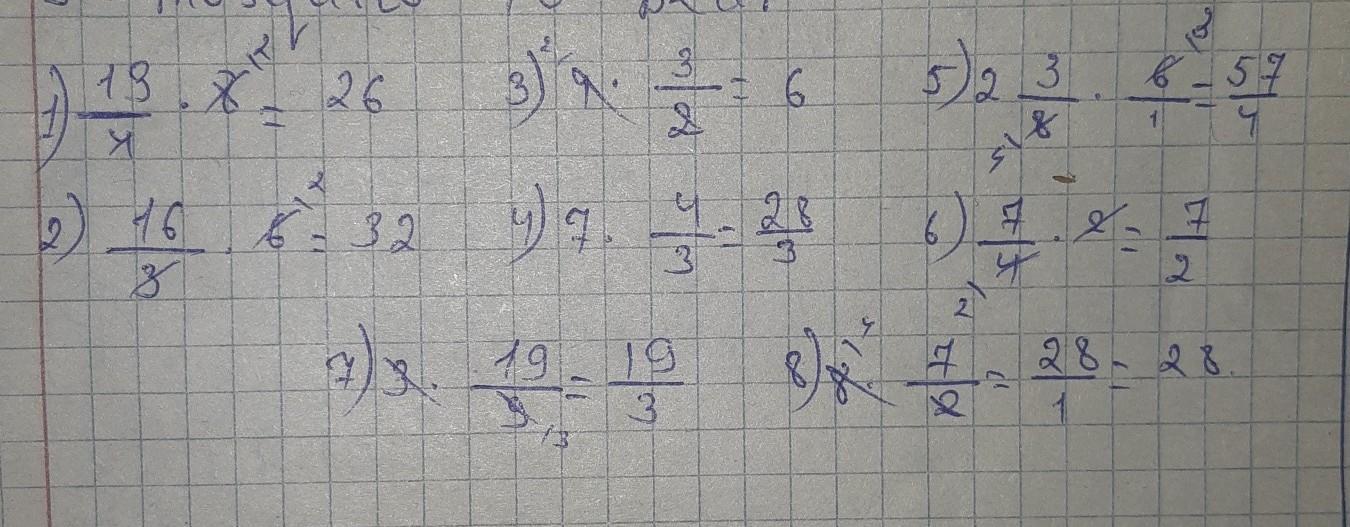 1) 13/4 · 8 = 26 3) 4 · 3/2 = 6 5) 2 3/8 · 6/1 = 57/4
2) 16/3 · 6 = 32 4) 7 · 4/3 = 28/3 6) 7/4 · 2 = 7/2
7) 3 · 19/9 = 19/3 8) 8 · 7/2 = 28/1 = 28.